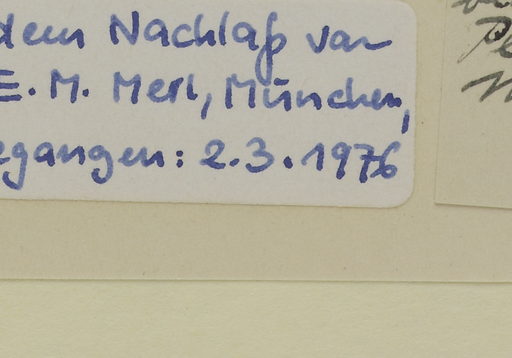 dem Nachlaß von
E. M. Merl, München,
egangen: 2.3.1976